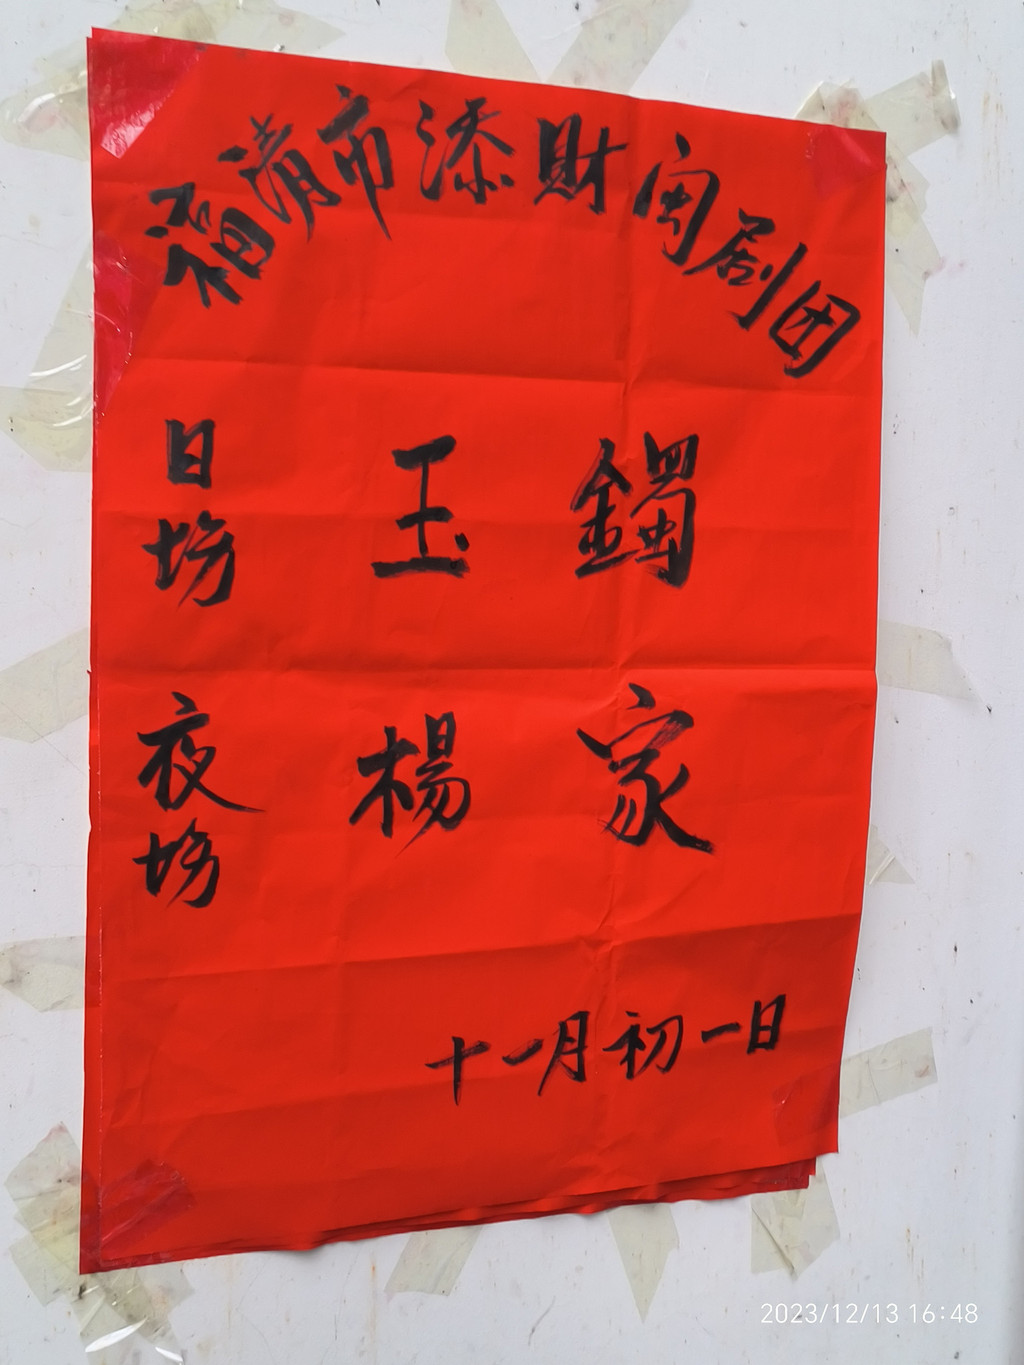 福清市添財闽剧团
日坊 玉鐲
夜坊 楊家
十一月初一日
2023/12/13 16:48